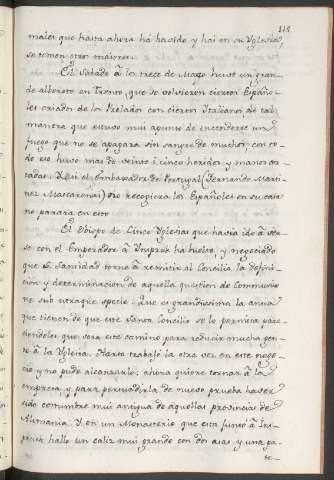 118
males que hasta ahora ha havido, y hai en su Yglesia
se temen otros maiores.
El Sabado à los trece de Março huvo un gran-
de alboroto en Trento, que se volvieron ciertos Españo-
les criados de los Prelados con ciertos Italianos de tal
manera que estuvo mui apunto de encenderse un
fuego que no se apagara sin sangre de muchos; con to-
do eso huvo mas de veinte i cinco heridos y manos cor-
tadas. Y si el Embaxador de Portugal (Fernando Marti-
nez Mascarenas) no recogiera los Españoles en su casa
no parara en esto.
El Obispo de Cinco Yglesias que havia ido à ver-
se con el Emperador à Inspruc ha buelto, y negociado
que S. Santidad torne à remitir al Concilio la defini-
cion y determinacion de aquella question de Communio-
ne sub utraque specie. Que es grandissima la ansia
que tienen de que este Santo Concilio se lo permita pare-
ciendoles que sera este camino para reducir mucha gen-
te à la Yglesia. Harto trabajò la otra vez en este nego-
cio y no pudo alcanzarlo; ahora quiere tornar à la
empresa, y para persuadirla de nuevo prueba haver
sido costumbre mui antigua de aquellas provincias de
Alemania. Y en un Monasterio que està junto à Ins-
pruck hallò un caliz mui grande con dos asas y una pa-
te-